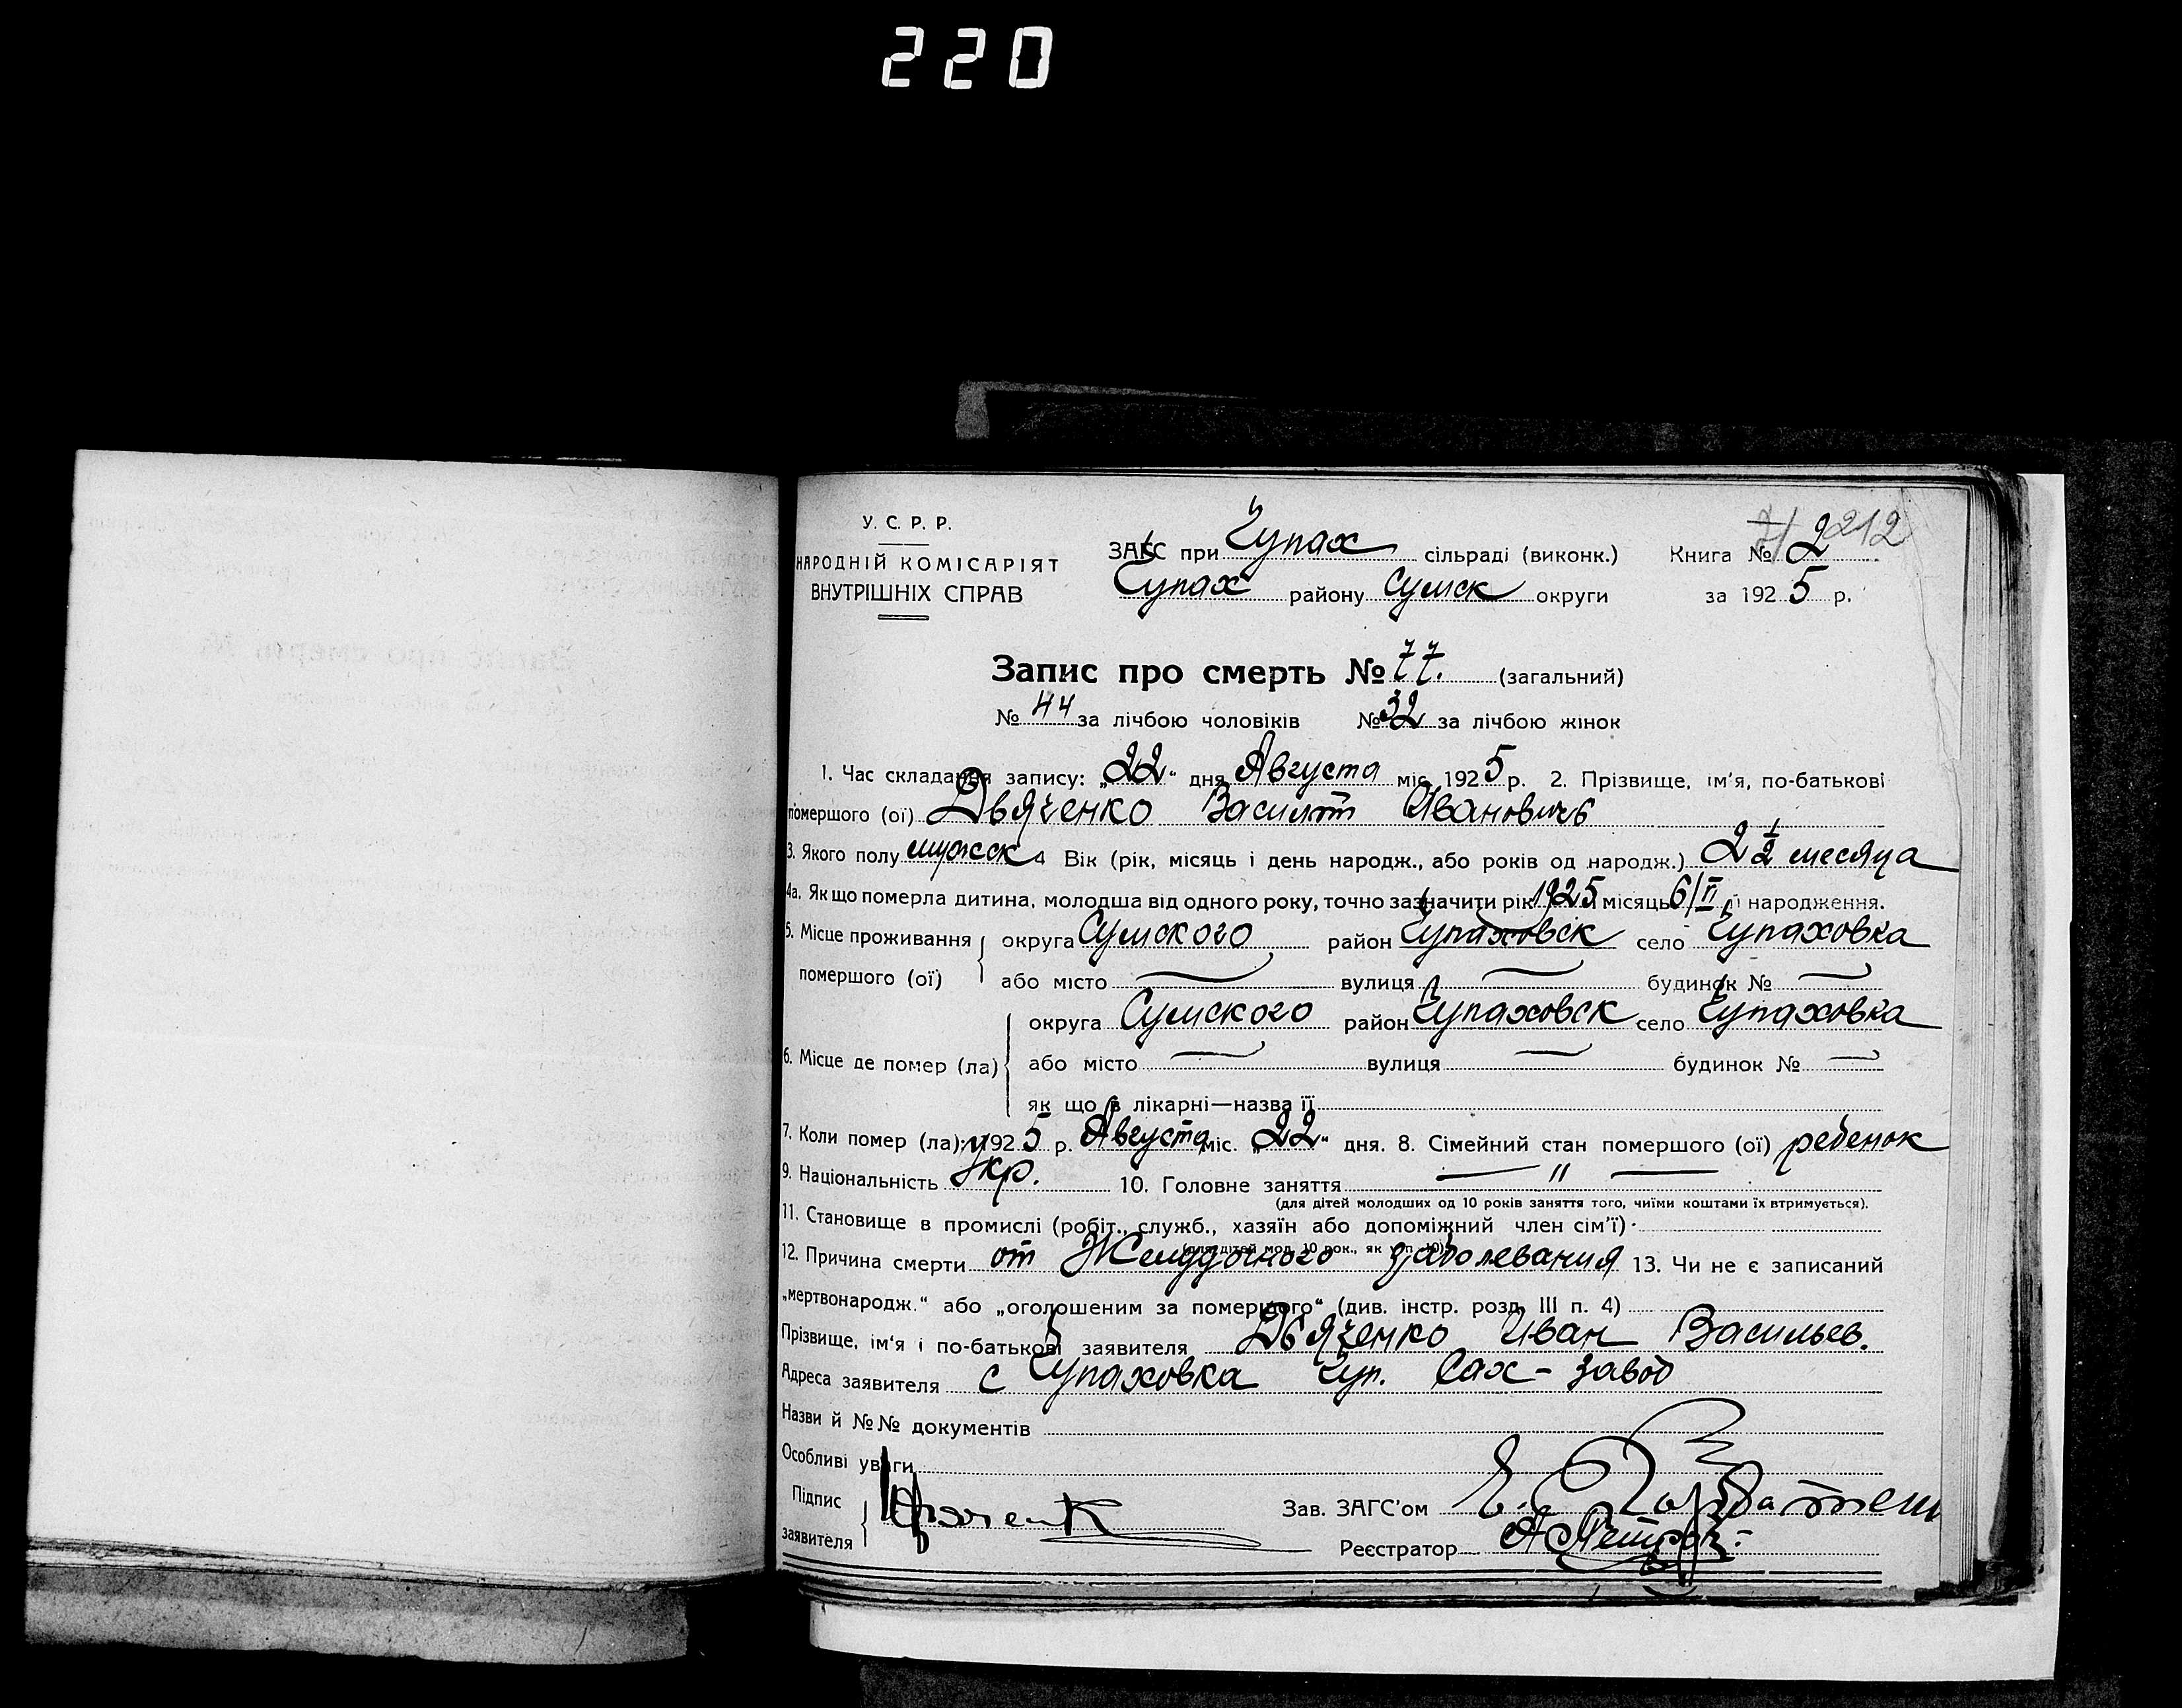 220
212
У. С. Р. Р.
НАРОДНІЙ КОМІСАРІЯТ
ВНУТРІШНІХ СПРАВ
ЗАГС при Чупах сільраді (виконк.) Книга № 2
Чупах району Сумск округи за 1925 р.
Запис про смерть № 77. (загальний)
№ 44 за лічбою чоловіків № 32 за лічбою жінок
1. Час складання запису: „22“ дня Августа міс. 1925 р. 2. Прізвище, ім'я, по-батькові
помершого (ої) Дьяченко Василий Ивановичь
3. Якого полу мужск 4 Вік (рік, місяць і день народж., або років од народж.) 2 1/2 месяца
4а. Як що померла дитина, молодша від одного року, точно зазначити рік 1925 місяць 6/II її народження.
5. Місце проживання помершого (ої) округа Сумского район Чупаховск село Чупаховка
або місто вулиця будинок №
6. Місце де помер (ла) округа Сумского район Чупаховск село Чупаховка
або місто вулиця будинок №
як що в лікарні—назва її
7. Коли помер (ла): 1925 р. Августа міс. „22“ дня. 8. Сімейний стан помершого (ої) ребенок
9. Національність Укр. 10. Головне заняття — „ —
(для дітей молодших од 10 років заняття того, чиїми коштами їх втримується).
11. Становище в промислі (робіт., служб., хазяїн або допоміжний член сім'ї)
(для дітей мол. 10 рок., як у п. 10)
12. Причина смерти от Желудочного заболевания 13. Чи не є записаний
„мертвонародж.“ або „оголошеним за помершого“ (див. інстр. розд. III п. 4)
Прізвище, ім'я і по-батькові заявителя Дьяченко Иван Васильев.
Адреса заявителя с Чупаховка Чуп. Сах-завод
Назви й №№ документів
Особливі уваги
Підпис заявителя Зав. ЗАГС'ом
Реєстратор